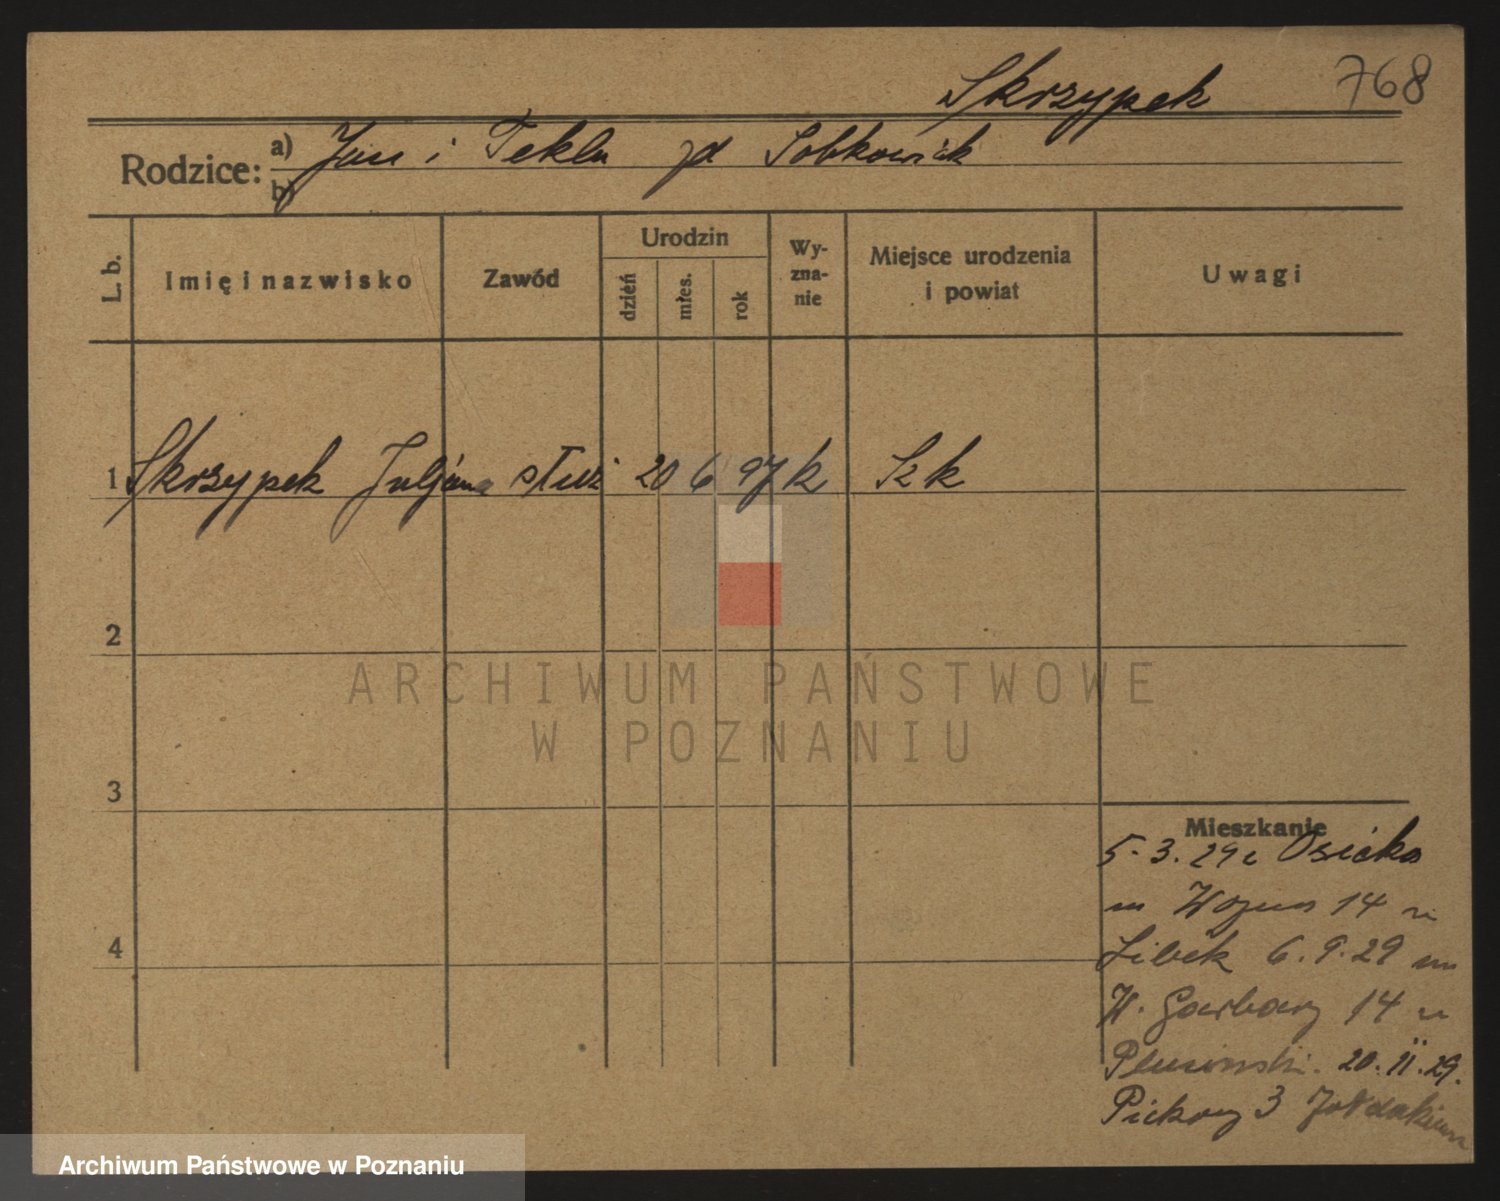 Skrzypek 768
Rodzice: a) Jan i Tekla zd Sobkowiak
b)
L. b. Imię i nazwisko Zawód Urodzin dzień mies. rok Wyznanie Miejsce urodzenia i powiat Uwagi
1 Skrzypek Juljana służ 20 6 97 k Szk
2
3
4
Mieszkanie
5. 3. 29 z Osiecka
m 14 u
Libek 6. 9. 29 m
W. Garbary 14 u
20. II. 29.
Piekary 3
ARCHIWUM PAŃSTWOWE
W POZNANIU
Archiwum Państwowe w Poznaniu